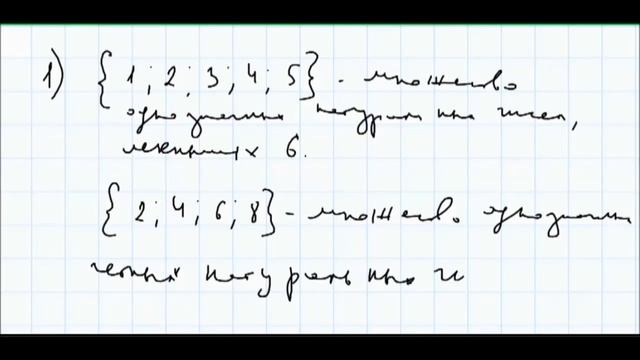 1) {1; 2; 3; 4; 5} - множество
однозначных натуральных чисел,
меньших 6.
{2; 4; 6; 8} - множество однозначных
четных натуральных ч